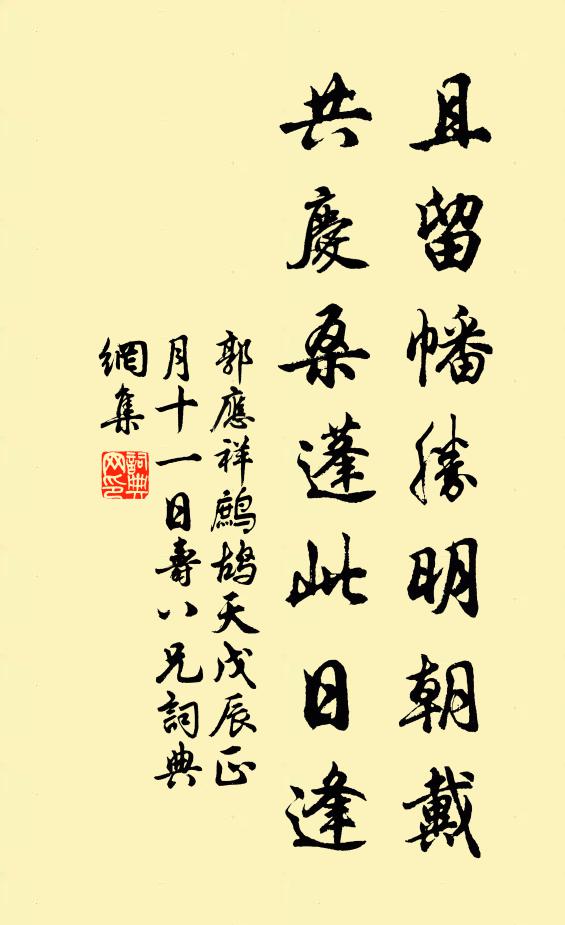 且留幡勝明朝戴
共慶桑蓬此日逢
郭應祥鷓鴣天戊辰正
月十一日壽八兄詞典
網集
詞典網印